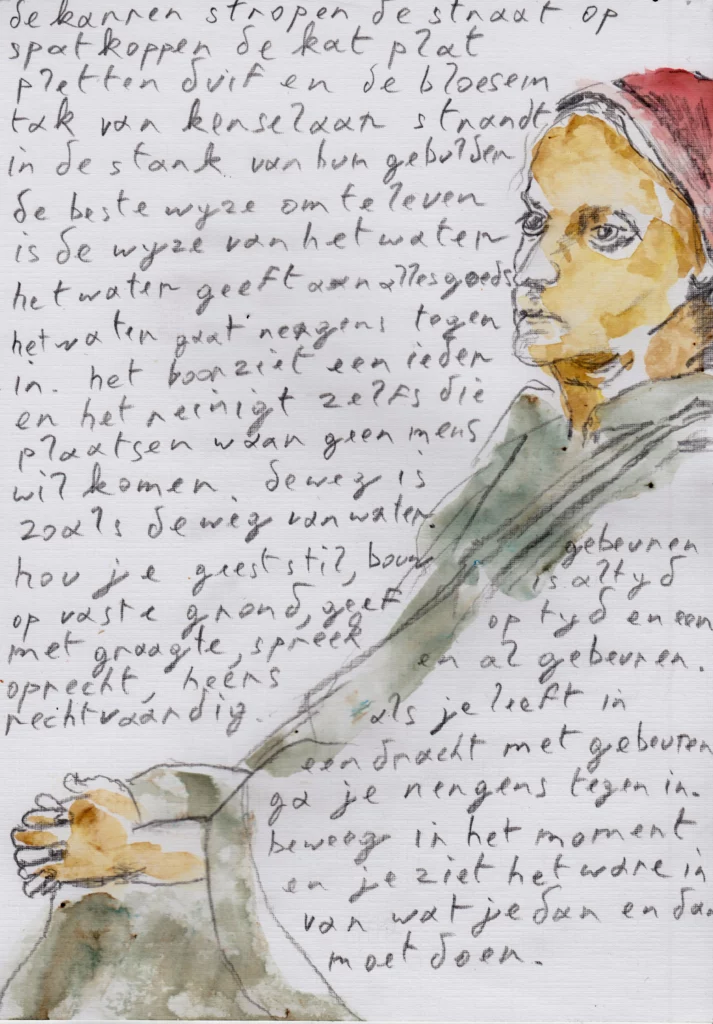 de karren stropen de straat op
spatkoppen de kat plat
pletten duif en de bloesem
tak van kenselaar strandt
in de stank van hun gebulder
de beste wyze om te leven
is de wyze van het water
het water geeft aan alles goeds
het water gaat nergens tegen
in. het voorziet een ieder
en het reinigt zelfs die
plaatsen waar geen mens
wil komen. de weg is
zoals de weg van water
hou je geest stil, bouw
op vaste grond, geef
met graagte, spreek
oprecht, heers
rechtvaardig.
gebeuren
is altyd
op tyd en een
en al gebeuren.
als je leeft in
eendracht met gebeuren
ga je nergens tegen in.
beweeg in het moment
en je ziet het ware in
van wat je dan en dan
moet doen.